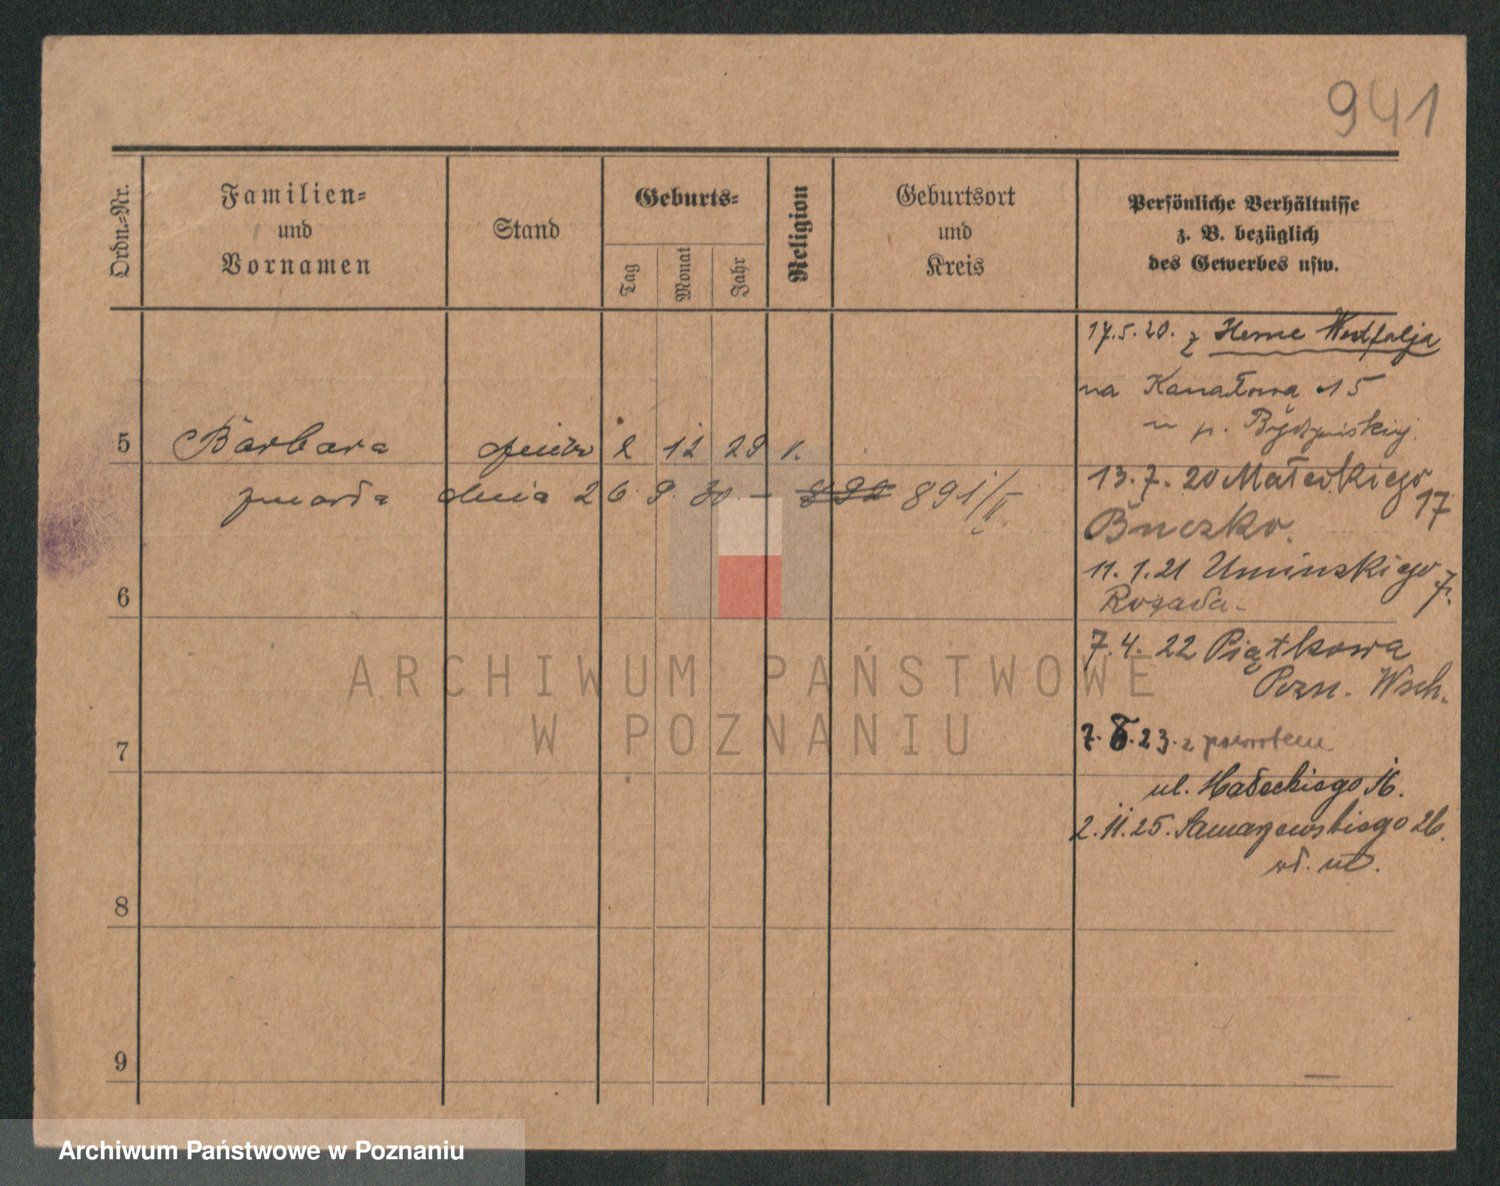 941
Ordn.-Nr.
Familien-
und
Vornamen
Stand
Geburts-
Tag
Monat
Jahr
Religion
Geburtsort
und
Kreis
Persönliche Verhältnisse
z. B. bezüglich
des Gewerbes usw.
17.5.20. z Herne Westfalja
na Kanałowa 15
u p.
5 Barbara 2 12 29 k.
zmarła dnia 26 9 30 – 892 891/II.
13.7.20 Małeckiego 17
11.1.21 Umińskiego 7.
6
7.4.22 Piątkowa
Pozn. Wsch.
7
7.8.23. z powrotem
ul. Małeckiego 16.
2.11.25. Samarzewskiego 26.
8
9
ARCHIWUM PAŃSTWOWE
W POZNANIU
Archiwum Państwowe w Poznaniu